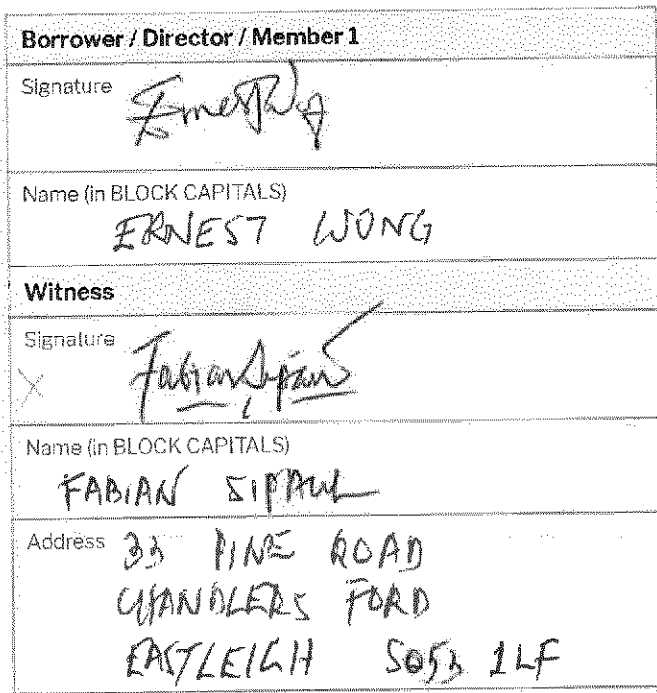 Borrower / Director / Member 1
Signature
Name (in BLOCK CAPITALS)
ERNEST WONG
Witness
Signature
X
Name (in BLOCK CAPITALS)
FABIAN SIPAUL
Address 33 PINE ROAD
CHANDLERS FORD
EASTLEIGH SO53 1LF